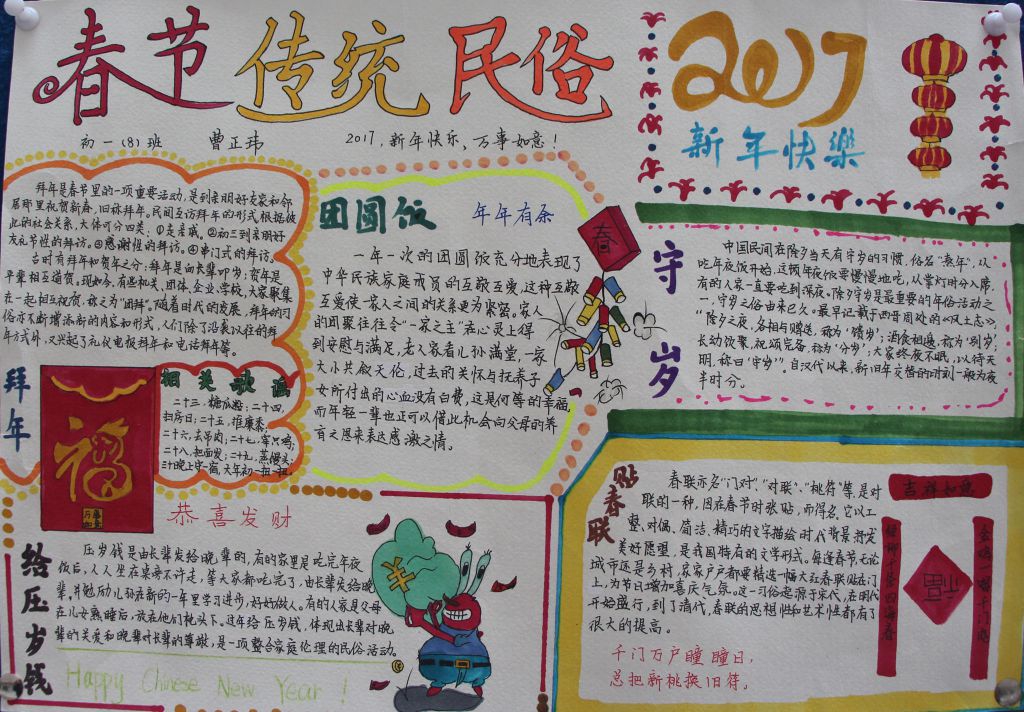 春节传统民俗
初一(8)班 曹正玮 2017,新年快乐、万事如意!
2017
新年快樂
拜年是春节里的一项重要活动,是到亲朋好友家和邻
居那里祝贺新春,旧称拜年。民间互访拜年的形式,根据彼
此的社会关系,大体可分四类:①走亲戚。②初三到亲朋好
友礼节性的拜访。③感谢性的拜访。④串门式的拜访。
古时有拜年和贺年之分:拜年是向长辈叩岁;贺年是
平辈相互道贺。现如今,有些机关、团体、企业、学校,大家聚集
在一起相互祝贺,称之为“团拜”。随着时代的发展,拜年的习
俗亦不断增添新的内容和形式,人们除了沿袭以往的拜
年方式外,又兴起了礼仪电报拜年和电话拜年等。
拜年
福
相关歌谣
二十三,糖瓜粘;二十四,
扫房日;二十五,推糜黍;
二十六,去吊肉;二十七,宰只鸡;
二十八,把面发;二十九,蒸馒头;
三十晚上守一宿,大年初一扭一扭
团圆饭 年年有余
一年一次的团圆饭充分地表现了
中华民族家庭成员的互敬互爱,这种互敬
互爱使一家人之间的关系更为紧密。家人
的团聚往往令“一家之主”在心灵上得
到安慰与满足,老人家看儿孙满堂,一家
大小共叙天伦,过去的关怀与抚养子
女所付出的心血没有白费,这是何等的幸福。
而年轻一辈也正可以借此机会向父母的养
育之恩来表达感激之情。
春
守岁
中国民间在除夕当天有守岁的习惯,俗名“熬年”,从
吃年夜饭开始,这顿年夜饭要慢慢地吃,从掌灯时分入席,
有的人家一直要吃到深夜。除夕守岁是最重要的年俗活动之
一,守岁之俗由来已久。最早记载于西晋周处的《风土志》:
“除夕之夜,各相与赠送,称为‘馈岁’;酒食相邀,称为‘别岁’;
长幼饮聚,祝颂完备,称为‘分岁’;大家终夜不眠,以待天
明,称曰‘守岁’”。自汉代以来,新旧年交替的时刻一般为夜
半时分。
恭喜发财
给压岁钱
压岁钱是由长辈发给晚辈的,有的家里是吃完年夜
饭后,人人坐在桌旁不许走,等大家都吃完了,由长辈发给晚
辈,并勉励儿孙在新的一年里学习进步,好好做人。有的人家是父母
在儿女熟睡后,放在他们枕头下。过年给压岁钱,体现出长辈对晚
辈的关爱和晚辈对长辈的尊敬,是一项整合家庭伦理的民俗活动。
Happy Chinese New Year !
¥
贴春联
春联亦名“门对”、“对联”、“桃符”等,是对
联的一种,因在春节时张贴,而得名。它以工
整、对偶、简洁、精巧的文字描绘时代背景,抒发
美好愿望,是我国特有的文学形式。每逢春节,无论
城市还是乡村,家家户户都要精选一幅大红春联贴在门
上,为节日增加喜庆气氛。这一习俗起源于宋代,在明代
开始盛行,到了清代,春联的思想性和艺术性都有了
很大的提高。
千门万户瞳瞳日,
总把新桃换旧符。
吉祥如意
福